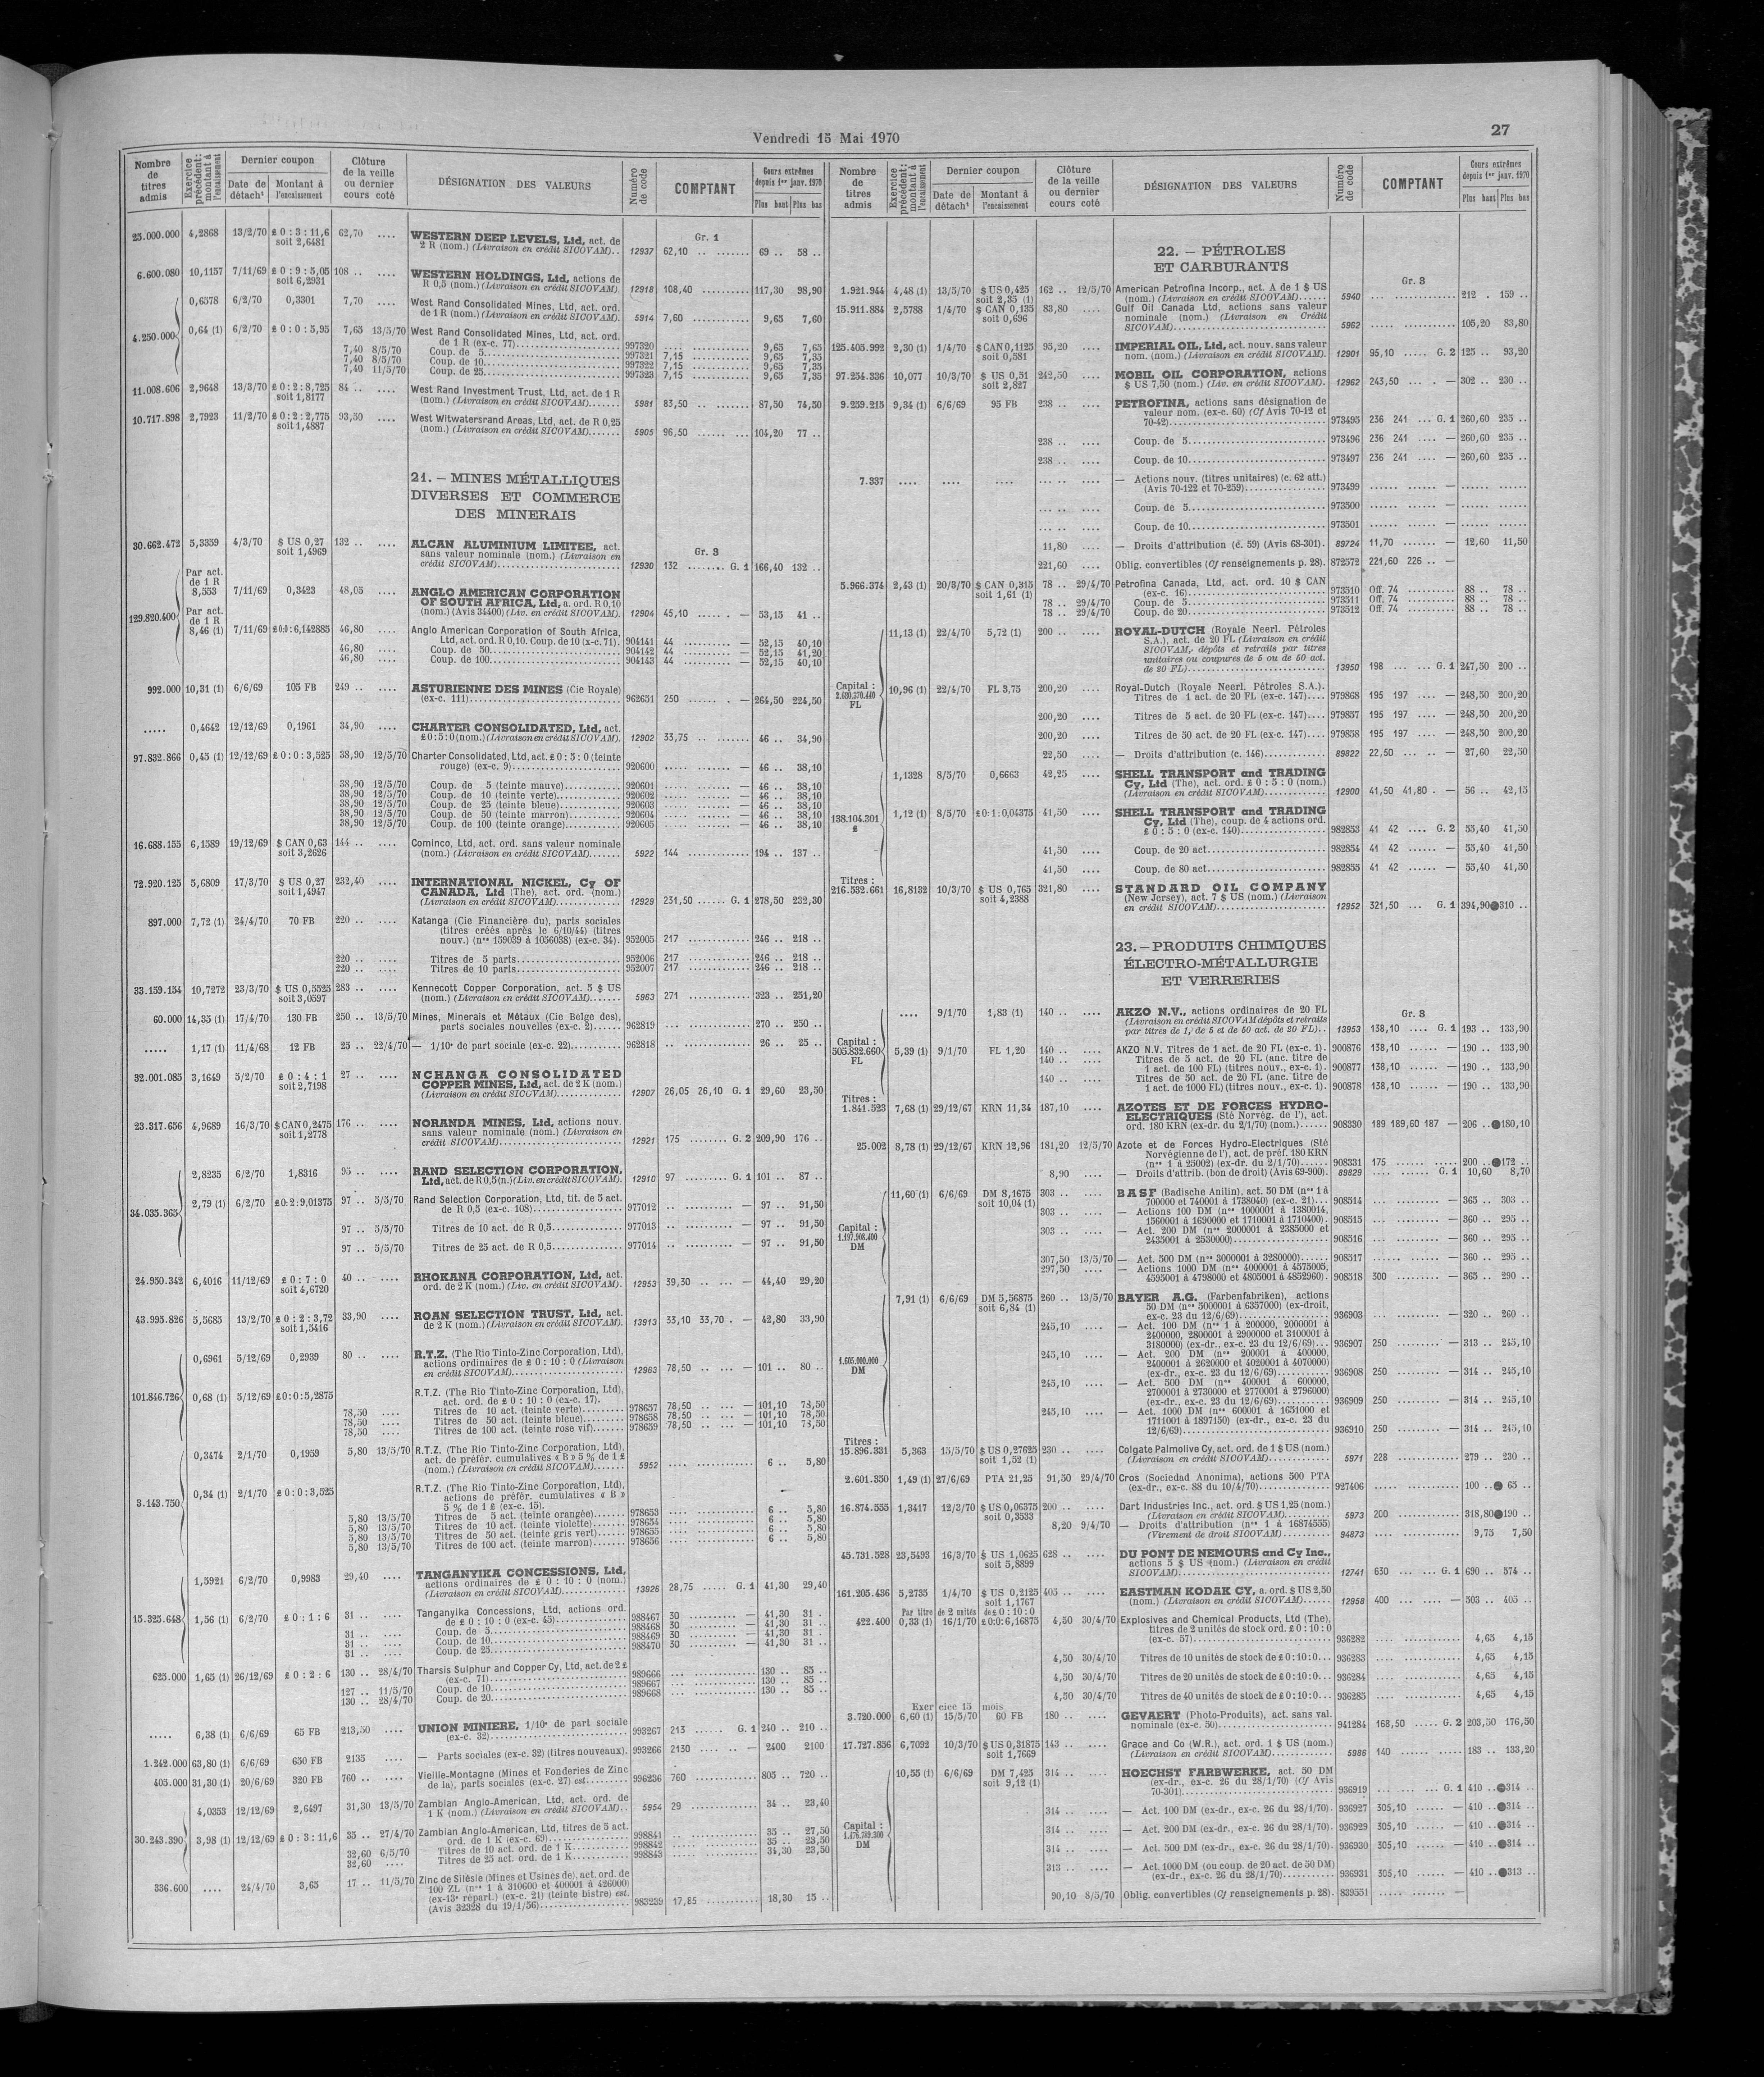 Vendredi 15 Mai 1970
27
Nombre de titres admis
Exercice précédent : montant à l'encaissement
Dernier coupon
Date de détach¹
Montant à l'encaissement
Clôture de la veille ou dernier cours coté
DÉSIGNATION DES VALEURS
Numéro de code
COMPTANT
Cours extrêmes depuis 1er janv. 1970
Plus haut Plus bas
Gr. 1
25.000.000 4,2868 13/2/70 £ 0 : 3 : 11,6 62,70 .... WESTERN DEEP LEVELS, Ltd, act. de
soit 2,6481 2 R (nom.) (Livraison en crédit SICOVAM).. 12937 62,10 .. ....... 69 .. 58 ..
6.600.080 10,1157 7/11/69 £ 0 : 9 : 5,05 108 .. .... WESTERN HOLDINGS, Ltd, actions de
soit 6,2931 R 0,5 (nom.) (Livraison en crédit SICOVAM). 12918 108,40 .......... 117,30 98,90
0,6578 6/2/70 0,3301 7,70 .... West Rand Consolidated Mines, Ltd, act. ord.
de 1 R (nom.) (Livraison en crédit SICOVAM). 5914 7,60 ............ 9,65 7,60
4.250.000 0,64 (1) 6/2/70 £ 0 : 0 : 5,95 7,65 13/5/70 West Rand Consolidated Mines, Ltd, act. ord.
de 1 R (ex-c. 77).................... 997320 .... ........... 9,65 7,65
7,40 8/5/70 Coup. de 5.................... 997321 7,15 ............ 9,65 7,35
7,40 8/5/70 Coup. de 10.................... 997322 7,15 ............ 9,65 7,35
7,40 11/5/70 Coup. de 25.................... 997323 7,15 ............ 9,65 7,35
11.008.606 2,9648 13/3/70 £ 0 : 2 : 8,725 84 .. .... West Rand Investment Trust, Ltd, act. de 1 R
soit 1,8177 (nom.) (Livraison en crédit SICOVAM)....... 5981 83,50 .. ........ 87,50 74,50
10.717.898 2,7923 11/2/70 £ 0 : 2 : 2,775 93,50 .... West Witwatersrand Areas, Ltd, act. de R 0,25
soit 1,4887 (nom.) (Livraison en crédit SICOVAM)....... 5905 96,50 ...... ... 104,20 77 ..
21. — MINES MÉTALLIQUES
DIVERSES ET COMMERCE
DES MINERAIS
Gr. 3
30.662.472 5,3359 4/3/70 $ US 0,27 132 .. .... ALCAN ALUMINIUM LIMITEE, act.
soit 1,4969 sans valeur nominale (nom.) (Livraison en
crédit SICOVAM).................... 12930 132 ....... G. 1 166,40 132 ..
Par act. de 1 R
8,553 7/11/69 0,3423 48,05 .... ANGLO AMERICAN CORPORATION
OF SOUTH AFRICA, Ltd, a. ord. R 0,10
129.820.400 (nom.) (Avis 34400) (Liv. en crédit SICOVAM). 12904 45,10 ..... . — 53,15 41 ..
Par act. de 1 R
8,46 (1) 7/11/69 £0:0:6,142885 46,80 .... Anglo American Corporation of South Africa,
Ltd, act. ord. R 0,10. Coup. de 10 (x-c. 71). 904141 44 .......... — 52,15 40,10
46,80 .... Coup. de 50.................... 904142 44 .......... — 52,15 41,20
46,80 .... Coup. de 100.................... 904143 44 .......... — 52,15 40,10
992.000 10,31 (1) 6/6/69 105 FB 249 .. .... ASTURIENNE DES MINES (Cie Royale)
(ex-c. 111).................... 962651 250 ...... . — 264,50 224,50
..... 0,4642 12/12/69 0,1961 34,90 .... CHARTER CONSOLIDATED, Ltd, act.
£ 0 : 5 : 0 (nom.) (Livraison en crédit SICOVAM). 12902 33,75 .. ....... 46 .. 34,90
97.832.866 0,45 (1) 12/12/69 £ 0 : 0 : 3,525 38,90 12/5/70 Charter Consolidated, Ltd, act. £ 0 : 5 : 0 (teinte
rouge) (ex-c. 9).................... 920600 ..... ....... — 46 .. 38,10
38,90 12/5/70 Coup. de 5 (teinte mauve)........... 920601 ..... ....... — 46 .. 38,10
38,90 12/5/70 Coup. de 10 (teinte verte)........... 920602 ..... ....... — 46 .. 38,10
38,90 12/5/70 Coup. de 25 (teinte bleue)........... 920603 ..... ....... — 46 .. 38,10
38,90 12/5/70 Coup. de 50 (teinte marron)......... 920604 ..... ....... — 46 .. 38,10
38,90 12/5/70 Coup. de 100 (teinte orange)......... 920605 ..... ....... — 46 .. 38,10
16.688.155 6,1589 19/12/69 $ CAN 0,63 144 .. .... Cominco, Ltd, act. ord. sans valeur nominale
soit 3,2626 (nom.) (Livraison en crédit SICOVAM)....... 5922 144 ............ 194 .. 137 ..
72.920.125 5,6809 17/3/70 $ US 0,27 232,40 .... INTERNATIONAL NICKEL, Cy OF
soit 1,4947 CANADA, Ltd (The), act. ord. (nom.)
(Livraison en crédit SICOVAM)............. 12929 231,50 .... G. 1 278,50 232,30
897.000 7,72 (1) 24/4/70 70 FB 220 .. .... Katanga (Cie Financière du), parts sociales
(titres créés après le 6/10/44) (titres
nouv.) (nos 159039 à 1056038) (ex-c. 34). 952005 217 ............ 246 .. 218 ..
220 .. .... Titres de 5 parts.................... 952006 217 ............ 246 .. 218 ..
220 .. .... Titres de 10 parts.................... 952007 217 ............ 246 .. 218 ..
33.159.154 10,7272 23/3/70 $ US 0,5525 283 .. .... Kennecott Copper Corporation, act. 5 $ US
soit 3,0597 (nom.) (Livraison en crédit SICOVAM)....... 5963 271 ............ 323 .. 251,20
60.000 14,35 (1) 17/4/70 130 FB 250 .. 13/5/70 Mines, Minerais et Métaux (Cie Belge des),
parts sociales nouvelles (ex-c. 2)...... 962819 ... ............ 270 .. 250 ..
..... 1,17 (1) 11/4/68 12 FB 25 .. 22/4/70 — 1/10e de part sociale (ex-c. 22).......... 962818 .. ............ 26 .. 25 ..
32.001.085 3,1649 5/2/70 £ 0 : 4 : 1 27 .. .... NCHANGA CONSOLIDATED
soit 2,7198 COPPER MINES, Ltd, act. de 2 K (nom.)
(Livraison en crédit SICOVAM)............. 12907 26,05 26,10 G. 1 29,60 23,50
23.317.656 4,9689 16/3/70 $ CAN 0,2475 176 .. .... NORANDA MINES, Ltd, actions nouv.
soit 1,2778 sans valeur nominale (nom.) (Livraison en
crédit SICOVAM).................... 12921 175 ........ G. 2 209,90 176 ..
2,8235 6/2/70 1,8316 95 .. .... RAND SELECTION CORPORATION,
Ltd, act. de R 0,5 (n.) (Liv. en crédit SICOVAM). 12910 97 ......... G. 1 101 .. 87 ..
34.035.365 2,79 (1) 6/2/70 £0:2:9,01375 97 .. 5/5/70 Rand Selection Corporation, Ltd, tit. de 5 act.
de R 0,5 (ex-c. 108).................... 977012 .. .......... — 97 .. 91,50
97 .. 5/5/70 Titres de 10 act. de R 0,5.............. 977013 .. .......... — 97 .. 91,50
97 .. 5/5/70 Titres de 25 act. de R 0,5.............. 977014 .. .......... — 97 .. 91,50
24.950.342 6,4016 11/12/69 £ 0 : 7 : 0 40 .. .... RHOKANA CORPORATION, Ltd, act.
soit 4,6720 ord. de 2 K (nom.) (Liv. en crédit SICOVAM). 12953 39,30 .. ... — 44,40 29,20
43.995.826 5,5685 13/2/70 £ 0 : 2 : 3,72 33,90 .... ROAN SELECTION TRUST, Ltd, act.
soit 1,5416 de 2 K (nom.) (Livraison en crédit SICOVAM). 13913 33,10 33,70 . — 42,80 33,90
0,6961 5/12/69 0,2939 80 .. .... R.T.Z. (The Rio Tinto-Zinc Corporation, Ltd),
actions ordinaires de £ 0 : 10 : 0 (Livraison
en crédit SICOVAM).................... 12963 78,50 .. ... — 101 .. 80 ..
101.846.726 0,68 (1) 5/12/69 £0:0:5,2875 R.T.Z. (The Rio Tinto-Zinc Corporation, Ltd),
act. ord. de £ 0 : 10 : 0 (ex-c. 17).
78,50 .... Titres de 10 act. (teinte verte)........ 978657 78,50 .. ... — 101,10 78,50
78,50 .... Titres de 50 act. (teinte bleue)........ 978658 78,50 .. ... — 101,10 78,50
78,50 .... Titres de 100 act. (teinte rose vif)...... 978659 78,50 .. ... — 101,10 78,50
0,3474 2/1/70 0,1959 5,80 13/5/70 R.T.Z. (The Rio Tinto-Zinc Corporation, Ltd),
act. de préfér. cumulatives « B » 5 % de 1 £
(nom.) (Livraison en crédit SICOVAM)....... 5952 .... ............ 6 .. 5,80
3.143.750 0,34 (1) 2/1/70 £ 0 : 0 : 3,525 R.T.Z. (The Rio Tinto-Zinc Corporation, Ltd),
actions de préfér. cumulatives « B »
5 % de 1 £ (ex-c. 15).
5,80 13/5/70 Titres de 5 act. (teinte orangée)...... 978653 .... ............ 6 .. 5,80
5,80 13/5/70 Titres de 10 act. (teinte violette)...... 978654 .... ............ 6 .. 5,80
5,80 13/5/70 Titres de 50 act. (teinte gris vert)..... 978655 .... ............ 6 .. 5,80
5,80 13/5/70 Titres de 100 act. (teinte marron)...... 978656 .... ............ 6 .. 5,80
1,5921 6/2/70 0,9983 29,40 .... TANGANYIKA CONCESSIONS, Ltd,
actions ordinaires de £ 0 : 10 : 0 (nom.)
(Livraison en crédit SICOVAM)............. 13926 28,75 ..... G. 1 41,30 29,40
15.325.648 1,56 (1) 6/2/70 £ 0 : 1 : 6 31 .. .... Tanganyika Concessions, Ltd, actions ord.
de £ 0 : 10 : 0 (ex-c. 45)............... 988467 30 .......... — 41,30 31 .
31 .. .... Coup. de 5.................... 988468 30 .......... — 41,30 31 ..
31 .. .... Coup. de 10.................... 988469 30 .......... — 41,30 31 .
31 .. .... Coup. de 25.................... 988470 30 .......... — 41,30 31 ..
625.000 1,65 (1) 26/12/69 £ 0 : 2 : 6 130 .. 28/4/70 Tharsis Sulphur and Copper Cy, Ltd, act. de 2 £
(ex-c. 71).................... 989666 ... ............ 130 .. 85 ..
127 .. 11/5/70 Coup. de 10.................... 989667 ... ............ 130 .. 85 ..
130 .. 28/4/70 Coup. de 20.................... 989668 ... ............ 130 .. 85 ..
..... 6,38 (1) 6/6/69 65 FB 213,50 .... UNION MINIERE, 1/10e de part sociale
(ex-c. 32).................... 993267 213 ...... G. 1 240 .. 210 ..
1.242.000 63,80 (1) 6/6/69 650 FB 2135 .... — Parts sociales (ex-c. 32) (titres nouveaux). 993266 2130 .... .. — 2400 2100
405.000 31,30 (1) 20/6/69 320 FB 760 .. .... Vieille-Montagne (Mines et Fonderies de Zinc
de la), parts sociales (ex-c. 27) est........ 996236 760 ............ 805 .. 720 ..
4,0353 12/12/69 2,6497 31,30 13/5/70 Zambian Anglo-American, Ltd, act. ord. de
1 K (nom.) (Livraison en crédit SICOVAM).. 5954 29 ............ 34 .. 23,40
30.243.390 3,98 (1) 12/12/69 £ 0 : 3 : 11,6 35 .. 27/4/70 Zambian Anglo-American, Ltd, titres de 5 act.
ord. de 1 K (ex-c. 69).................... 998841 .. ............ 35 .. 27,50
32,60 6/5/70 Titres de 10 act. ord. de 1 K.......... 998842 .... ............ 35 .. 23,50
32,60 .... Titres de 25 act. ord. de 1 K.......... 998843 .... ............ 34,30 23,50
336.600 .... 24/4/70 3,65 17 .. 11/5/70 Zinc de Silésie (Mines et Usines de), act. ord. de
100 ZL (nos 1 à 310600 et 400001 à 426000)
(ex-13e répart.) (ex-c. 21) (teinte bistre) est.
(Avis 32328 du 19/1/56).................... 983239 17,85 ........... 18,30 15 ..
Nombre de titres admis
Exercice précédent : montant à l'encaissement
Dernier coupon
Date de détach¹
Montant à l'encaissement
Clôture de la veille ou dernier cours coté
DÉSIGNATION DES VALEURS
Numéro de code
COMPTANT
Cours extrêmes depuis 1er janv. 1970
Plus haut Plus bas
22. — PÉTROLES
ET CARBURANTS
Gr. 3
1.921.944 4,48 (1) 13/5/70 $ US 0,425 162 .. 12/5/70 American Petrofina Incorp., act. A de 1 $ US
soit 2,35 (1) (nom.) (Livraison en crédit SICOVAM)...... 5940 ... ............ 212 . 159 ..
15.911.884 2,5788 1/4/70 $ CAN 0,135 83,80 .... Gulf Oil Canada Ltd, actions sans valeur
soit 0,696 nominale (nom.) (Livraison en Crédit
SICOVAM).................... 5962 ..... ............ 105,20 83,80
125.405.992 2,30 (1) 1/4/70 $ CAN 0,1125 95,20 .... IMPERIAL OIL, Ltd, act. nouv. sans valeur
soit 0,581 nom. (nom.) (Livraison en crédit SICOVAM). 12901 95,10 ..... G. 2 125 .. 93,20
97.254.336 10,077 10/3/70 $ US 0,51 242,50 .... MOBIL OIL CORPORATION, actions
soit 2,827 $ US 7,50 (nom.) (Liv. en crédit SICOVAM). 12962 243,50 ... . — 302 .. 230 ..
9.259.215 9,34 (1) 6/6/69 95 FB 238 .. .... PETROFINA, actions sans désignation de
valeur nom. (ex-c. 60) (Cf Avis 70-12 et
70-42).................... 973495 236 241 ... G. 1 260,60 235 ..
238 .. .... Coup. de 5.................... 973496 236 241 .... — 260,60 235 ..
238 .. .... Coup. de 10.................... 973497 236 241 .... — 260,60 235 ..
7.337 .... .... .... ... .. .... — Actions nouv. (titres unitaires) (c. 62 att.)
(Avis 70-122 et 70-259).................... 973499 ...... ...... — ...... ......
... .. .... Coup. de 5.................... 973500 ...... ...... — ...... ......
... .. .... Coup. de 10.................... 973501 ...... ...... — ...... ......
11,80 .... — Droits d'attribution (c. 59) (Avis 68-301). 89724 11,70 ....... — 12,60 11,50
221,60 .... Oblig. convertibles (Cf renseignements p. 28). 872572 221,60 226 .. —
5.966.374 2,43 (1) 20/3/70 $ CAN 0,315 78 .. 29/4/70 Petrofina Canada, Ltd, act. ord. 10 $ CAN
soit 1,61 (1) (ex-c. 16).................... 973510 Off. 74 .......... 88 .. 78 ..
78 .. 29/4/70 Coup. de 5.................... 973511 Off. 74 .......... 88 .. 78 ..
78 .. 29/4/70 Coup. de 20.................... 973512 Off. 74 .......... 88 .. 78 ..
11,13 (1) 22/4/70 5,72 (1) 200 .. .... ROYAL-DUTCH (Royale Neerl. Pétroles
S.A.), act. de 20 FL (Livraison en crédit
SICOVAM, dépôts et retraits par titres
unitaires ou coupures de 5 ou de 50 act.
de 20 FL).................... 13950 198 ... ... G. 1 247,50 200 ..
Capital : 2.680.370.440 FL 10,96 (1) 22/4/70 FL 3,75 200,20 .... Royal-Dutch (Royale Neerl. Pétroles S.A.).
Titres de 1 act. de 20 FL (ex-c. 147).... 979868 195 197 .... — 248,50 200,20
200,20 .... Titres de 5 act. de 20 FL (ex-c. 147).... 979857 195 197 .... — 248,50 200,20
200,20 .... Titres de 50 act. de 20 FL (ex-c. 147).... 979858 195 197 .... — 248,50 200,20
22,50 .... — Droits d'attribution (c. 146)............. 89822 22,50 ... .. — 27,60 22,50
1,1328 8/5/70 0,6663 42,25 .... SHELL TRANSPORT and TRADING
Cy, Ltd (The), act. ord. £ 0 : 5 : 0 (nom.)
(Livraison en crédit SICOVAM)............. 12900 41,50 41,80 . — 56 .. 42,15
138.104.301 £ 1,12 (1) 8/5/70 £ 0 : 1 : 0,04375 41,50 .... SHELL TRANSPORT and TRADING
Cy, Ltd (The), coup. de 4 actions ord.
£ 0 : 5 : 0 (ex-c. 140).................... 982853 41 42 .... G. 2 55,40 41,50
41,50 .... Coup. de 20 act.................... 982854 41 42 ...... — 55,40 41,50
41,50 .... Coup. de 80 act.................... 982855 41 42 ...... — 55,40 41,50
Titres :
216.532.661 16,8132 10/3/70 $ US 0,765 321,80 .... STANDARD OIL COMPANY
soit 4,2388 (New Jersey), act. 7 $ US (nom.) (Livraison
en crédit SICOVAM).................... 12952 321,50 ... G. 1 394,90●310 ..
23. — PRODUITS CHIMIQUES
ÉLECTRO-MÉTALLURGIE
ET VERRERIES
Gr. 3
.... 9/1/70 1,83 (1) 140 .. .... AKZO N.V., actions ordinaires de 20 FL
(Livraison en crédit SICOVAM dépôts et retraits
par titres de 1, de 5 et de 50 act. de 20 FL).. 13953 138,10 .... G. 1 193 .. 133,90
Capital : 505.832.660 FL 5,39 (1) 9/1/70 FL 1,20 140 .. .... AKZO N.V. Titres de 1 act. de 20 FL (ex-c. 1). 900876 138,10 ...... — 190 .. 133,90
140 .. .... Titres de 5 act. de 20 FL (anc. titre de
1 act. de 100 FL) (titres nouv., ex-c. 1). 900877 138,10 ...... — 190 .. 133,90
140 .. .... Titres de 50 act. de 20 FL (anc. titre de
1 act. de 1000 FL) (titres nouv., ex-c. 1). 900878 138,10 ...... — 190 .. 133,90
Titres :
1.841.523 7,68 (1) 29/12/67 KRN 11,34 187,10 .... AZOTES ET DE FORCES HYDRO-
ELECTRIQUES (Sté Norvég. de l'), act.
ord. 180 KRN (ex-dr. du 2/1/70) (nom.)...... 908330 189 189,60 187 — 206 ..●180,10
25.002 8,78 (1) 29/12/67 KRN 12,96 181,20 12/5/70 Azote et de Forces Hydro-Electriques (Sté
Norvégienne de l'), act. de préf. 180 KRN
(nos 1 à 25002) (ex-dr. du 2/1/70)...... 908331 175 ...... ...... 200 ..●172 ..
8,90 .... — Droits d'attrib. (bon de droit) (Avis 69-900). 89829 .... ...... G. 1 10,60 8,70
11,60 (1) 6/6/69 DM 8,1675 303 .. .... BASF (Badische Anilin), act. 50 DM (nos 1 à
soit 10,04 (1) 700000 et 740001 à 1738040) (ex-c. 21)... 908514 ... ......... — 365 .. 303 ..
303 .. .... — Actions 100 DM (nos 1000001 à 1380014,
1560001 à 1690000 et 1710001 à 1710400). 908515 ... ......... — 360 .. 295 ..
Capital : 1.197.908.400 DM 303 .. .... — Act. 200 DM (nos 2000001 à 2385000 et
2435001 à 2530000).................... 908516 ... ......... — 360 .. 295 ..
307,50 13/5/70 — Act. 500 DM (nos 3000001 à 3280000)...... 908517 ..... ......... — 360 .. 295 ..
297,50 .... — Actions 1000 DM (nos 4000001 à 4575005,
4595001 à 4798000 et 4805001 à 4852960). 908518 300 ......... — 365 .. 290 ..
7,91 (1) 6/6/69 DM 5,56875 260 .. 13/5/70 BAYER A.G. (Farbenfabriken), actions
soit 6,84 (1) 50 DM (nos 5000001 à 6357000) (ex-droit,
ex-c. 23 du 12/6/69).................... 936903 ... ......... — 320 .. 260 ..
245,10 .... — Act. 100 DM (nos 1 à 200000, 2000001 à
2400000, 2800001 à 2900000 et 3100001 à
3180000) (ex-dr., ex-c. 23 du 12/6/69)... 936907 250 ......... — 313 .. 245,10
1.605.000.000 DM 245,10 .... — Act. 200 DM (nos 200001 à 400000,
2400001 à 2620000 et 4020001 à 4070000)
(ex-dr., ex-c. 23 du 12/6/69)........... 936908 250 ......... — 314 .. 245,10
245,10 .... — Act. 500 DM (nos 400001 à 600000,
2700001 à 2730000 et 2770001 à 2796000)
(ex-dr., ex-c. 23 du 12/6/69)........... 936909 250 ......... — 314 .. 245,10
245,10 .... — Act. 1000 DM (nos 600001 à 1651000 et
1711001 à 1897150) (ex-dr., ex-c. 23 du
12/6/69).................... 936910 250 ......... — 314 .. 245,10
Titres :
15.896.331 5,363 15/5/70 $ US 0,27625 230 .. .... Colgate Palmolive Cy, act. ord. de 1 $ US (nom.)
soit 1,52 (1) (Livraison en crédit SICOVAM)............. 5971 228 ............ 279 .. 230 ..
2.601.350 1,49 (1) 27/6/69 PTA 21,25 91,50 29/4/70 Cros (Sociedad Anonima), actions 500 PTA
(ex-dr., ex-c. 88 du 10/4/70)........... 927406 ..... ............ 100 ..● 65 ..
16.874.555 1,3417 12/3/70 $ US 0,06375 200 .. .... Dart Industries Inc., act. ord. $ US 1,25 (nom.)
soit 0,3533 (Livraison en crédit SICOVAM)............. 5973 200 ............ 318,80●190 ..
8,20 9/4/70 — Droits d'attribution (nos 1 à 16874555)
(Virement de droit SICOVAM)............. 94873 .... ............ 9,75 7,50
45.731.528 23,5493 16/3/70 $ US 1,0625 628 .. .... DU PONT DE NEMOURS and Cy Inc.,
soit 5,8899 actions 5 $ US (nom.) (Livraison en crédit
SICOVAM).................... 12741 630 ... ... G. 1 690 .. 574 ..
161.205.436 5,2735 1/4/70 $ US 0,2125 405 .. .... EASTMAN KODAK CY, a. ord. $ US 2,50
soit 1,1767 (nom.) (Livraison en crédit SICOVAM)...... 12958 400 .... .... — 503 .. 405 ..
Par titre de 2 unités de £ 0 : 10 : 0
422.400 0,33 (1) 16/1/70 £ 0:0: 6,16875 4,50 30/4/70 Explosives and Chemical Products, Ltd (The),
titres de 2 unités de stock ord. £ 0 : 10 : 0
(ex-c. 57).................... 936282 .... ............ 4,65 4,15
4,50 30/4/70 Titres de 10 unités de stock de £ 0 : 10 : 0... 936283 .... ............ 4,65 4,15
4,50 30/4/70 Titres de 20 unités de stock de £ 0 : 10 : 0... 936284 .... ............ 4,65 4,15
4,50 30/4/70 Titres de 40 unités de stock de £ 0 : 10 : 0... 936285 .... ............ 4,65 4,15
Exercice 15 mois
3.720.000 6,60 (1) 15/5/70 60 FB 180 .. .... GEVAERT (Photo-Produits), act. sans val.
nominale (ex-c. 50).................... 941284 168,50 ..... G. 2 203,50 176,50
17.727.836 6,7092 10/3/70 $ US 0,31875 143 .. .... Grace and Co (W.R.), act. ord. 1 $ US (nom.)
soit 1,7669 (Livraison en crédit SICOVAM)............. 5986 140 ............ 183 .. 133,20
10,55 (1) 6/6/69 DM 7,425 314 .. .... HOECHST FARBWERKE, act. 50 DM
soit 9,12 (1) (ex-dr., ex-c. 26 du 28/1/70) (Cf Avis
70-301).................... 936919 ... ... ... G. 1 410 ..●314 ..
314 .. .... — Act. 100 DM (ex-dr., ex-c. 26 du 28/1/70). 936927 305,10 ...... — 410 ..●314 ..
Capital : 1.476.789.300 DM 314 .. .... — Act. 200 DM (ex-dr., ex-c. 26 du 28/1/70). 936929 305,10 ...... — 410 ..●314 ..
314 .. .... — Act. 500 DM (ex-dr., ex-c. 26 du 28/1/70). 936930 305,10 ...... — 410 ..●314 ..
313 .. .... — Act. 1000 DM (ou coup. de 20 act. de 50 DM)
(ex-dr., ex-c. 26 du 28/1/70)........... 936931 305,10 ...... — 410 ..●313 ..
90,10 8/5/70 Oblig. convertibles (Cf renseignements p. 28). 839551 ..... ....... —